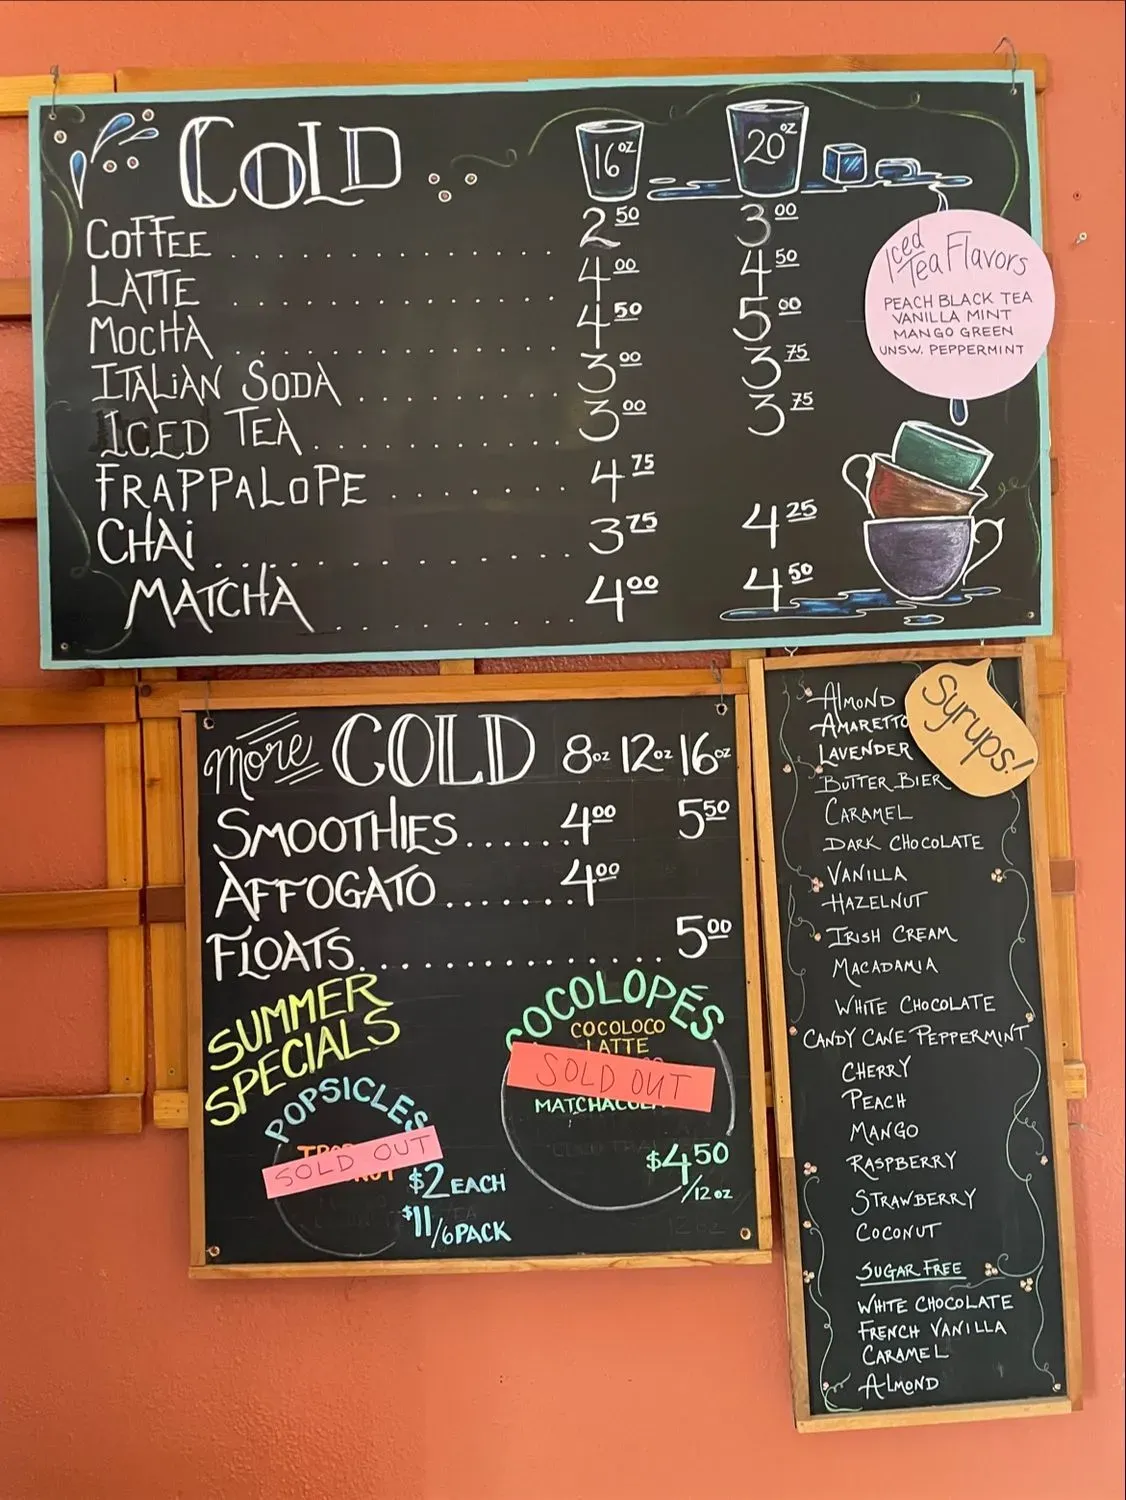 COLD 16oz 20oz
COFFEE .............. 2.50 3.00
LATTE .............. 4.00 4.50
MOCHA .............. 4.50 5.00
ITALIAN SODA .......... 3.00 3.75
ICED TEA ............ 3.00 3.75
FRAPPALOPE ........ 4.75
CHAI .............. 3.75 4.25
MATCHA .......... 4.00 4.50
Iced
Tea Flavors
PEACH BLACK TEA
VANILLA MINT
MANGO GREEN
UNSW. PEPPERMINT
more COLD 8oz 12oz 16oz
SMOOTHIES ...... 4.00 5.50
AFFOGATO ....... 4.00
FLOATS ................ 5.00
SUMMER
SPECIALS
POPSICLES
SOLD OUT
$2 EACH
$11/6 PACK
COCOLOPÉS
COCOLOCO
LATTE
SOLD OUT
$4.50
/12 oz
Syrups!
ALMOND
AMARETTO
LAVENDER
BUTTER BIER
CARAMEL
DARK CHOCOLATE
VANILLA
HAZELNUT
IRISH CREAM
MACADAMIA
WHITE CHOCOLATE
CANDY CANE PEPPERMINT
CHERRY
PEACH
MANGO
RASPBERRY
STRAWBERRY
COCONUT
SUGAR FREE
WHITE CHOCOLATE
FRENCH VANILLA
CARAMEL
ALMOND